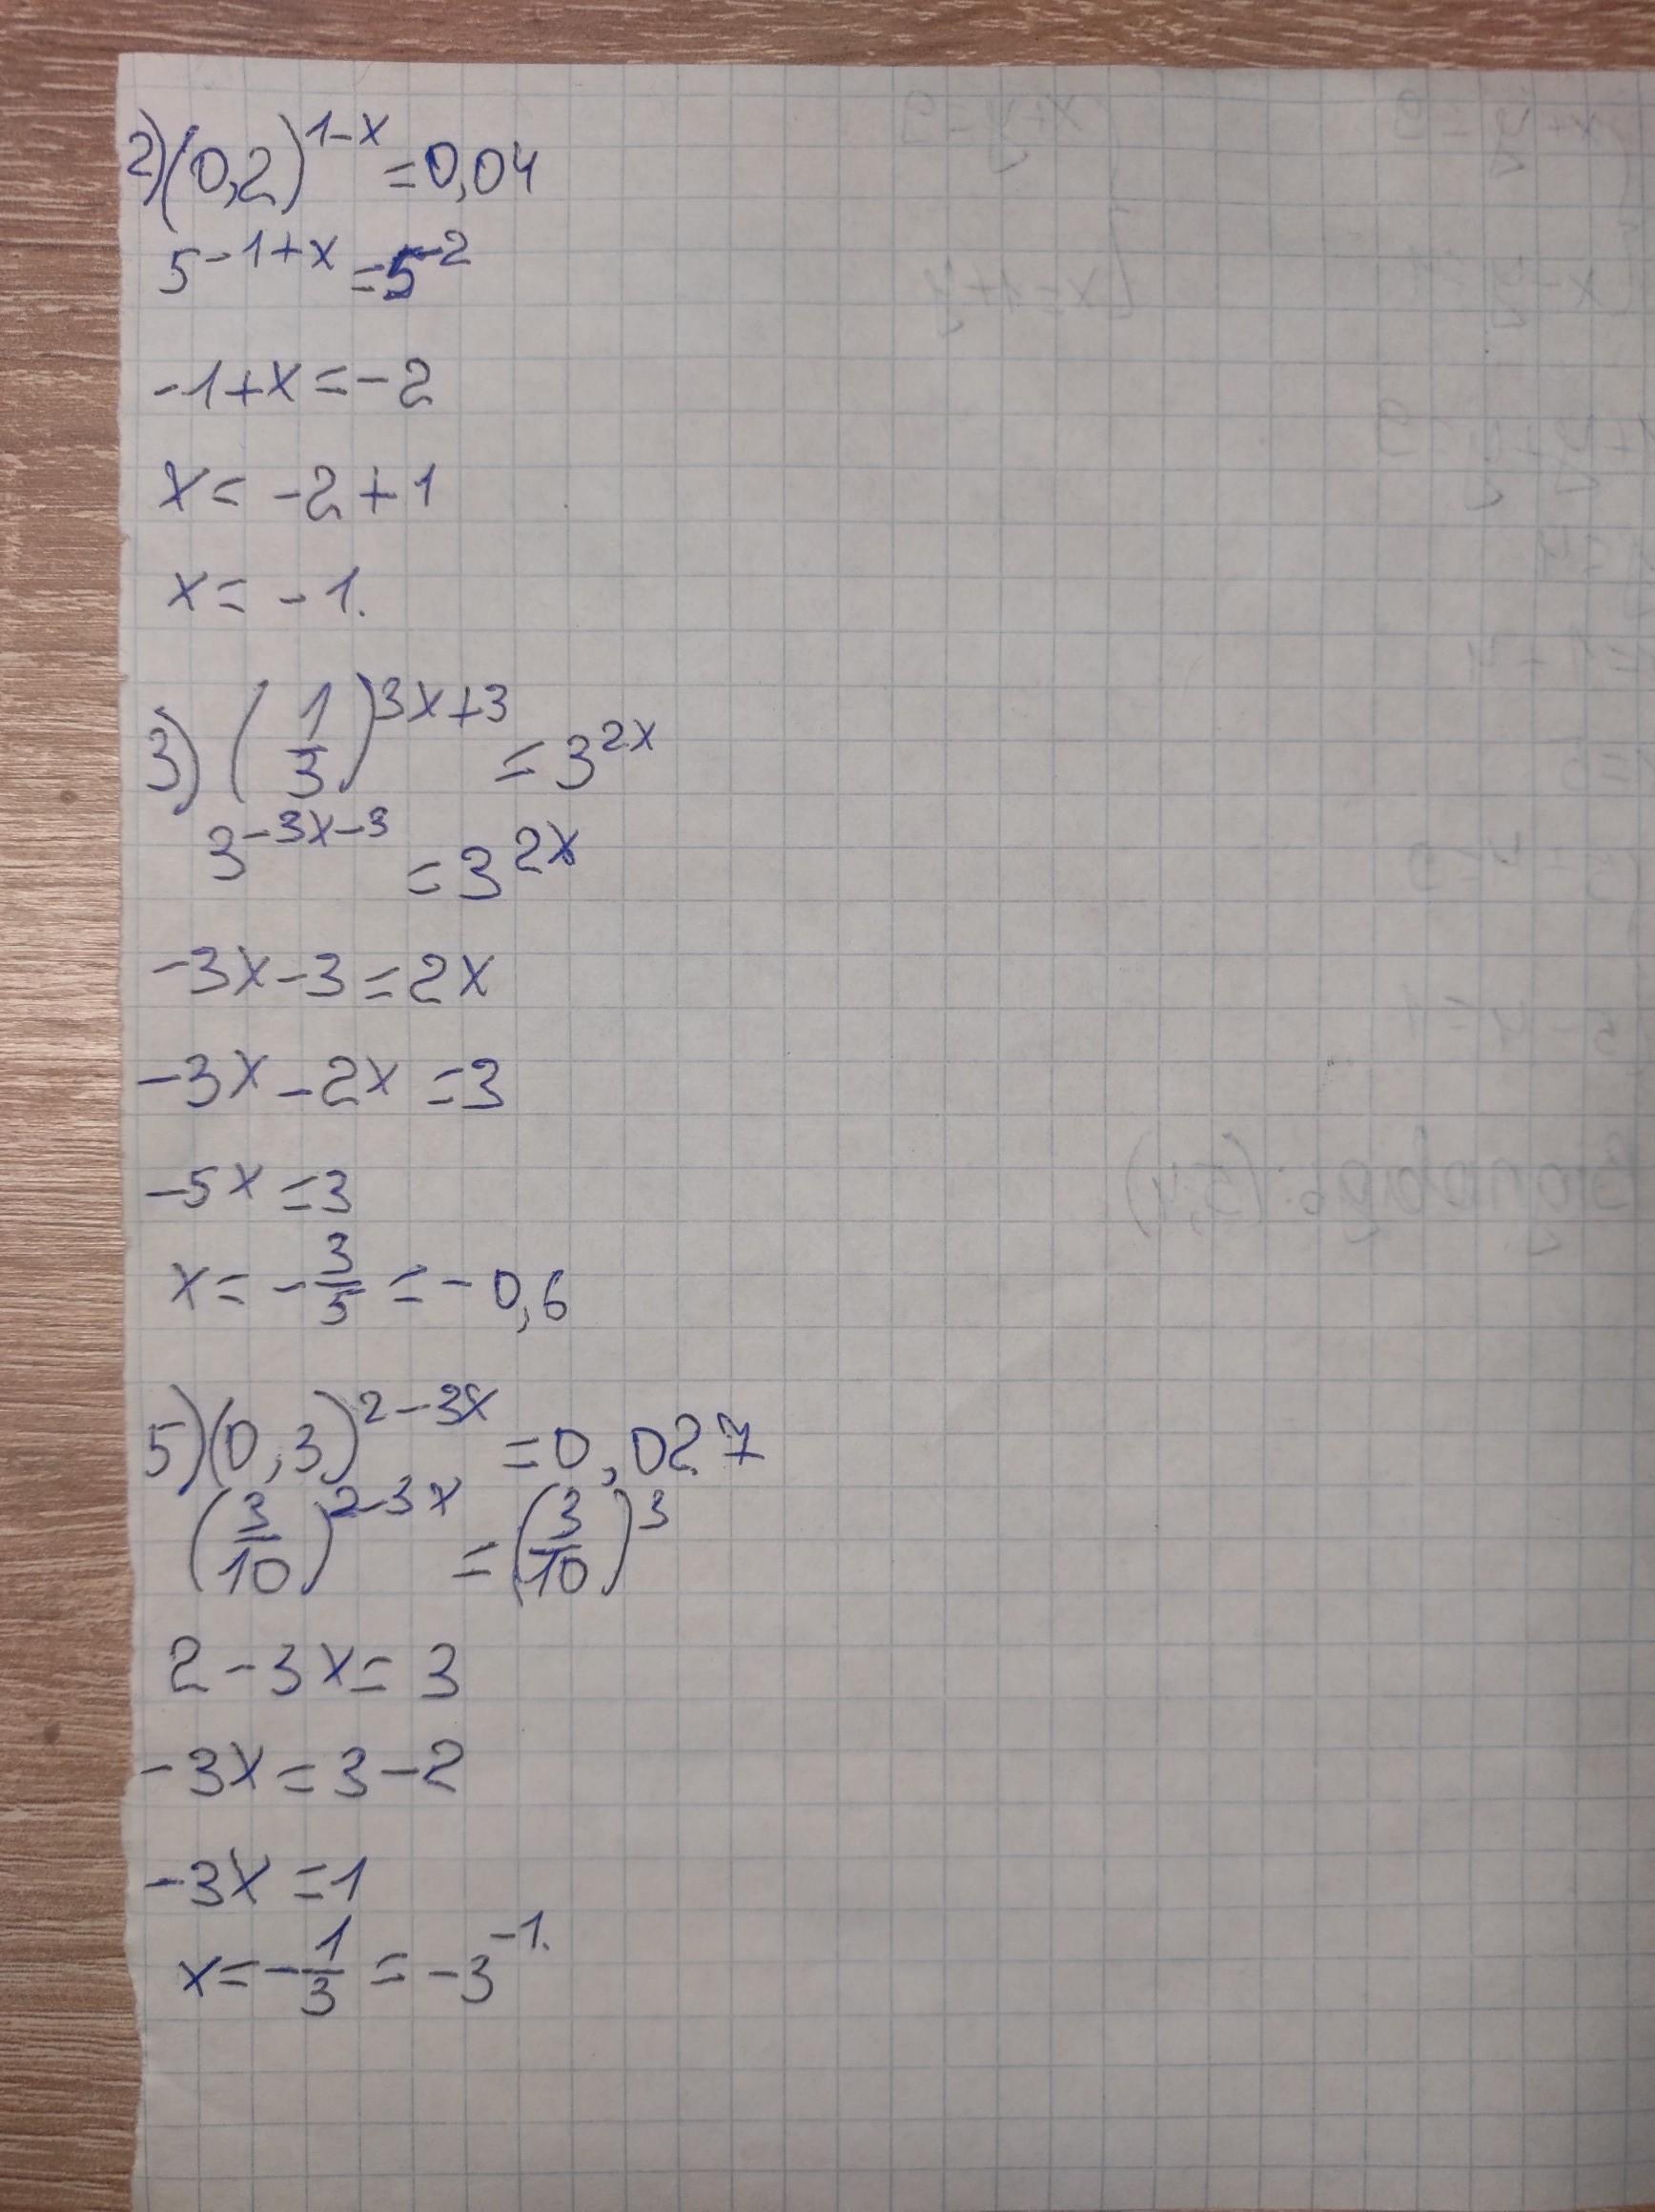 2) (0,2)^{1-x} = 0,04
5^{-1+x} = 5^{-2}
-1+x = -2
x = -2+1
x = -1.
3) (1/3)^{3x+3} = 3^{2x}
3^{-3x-3} = 3^{2x}
-3x-3 = 2x
-3x-2x = 3
-5x = 3
x = -3/5 = -0,6
5) (0,3)^{2-3x} = 0,027
(3/10)^{2-3x} = (3/10)^3
2-3x = 3
-3x = 3-2
-3x = 1
x = -1/3 = -3^{-1}.